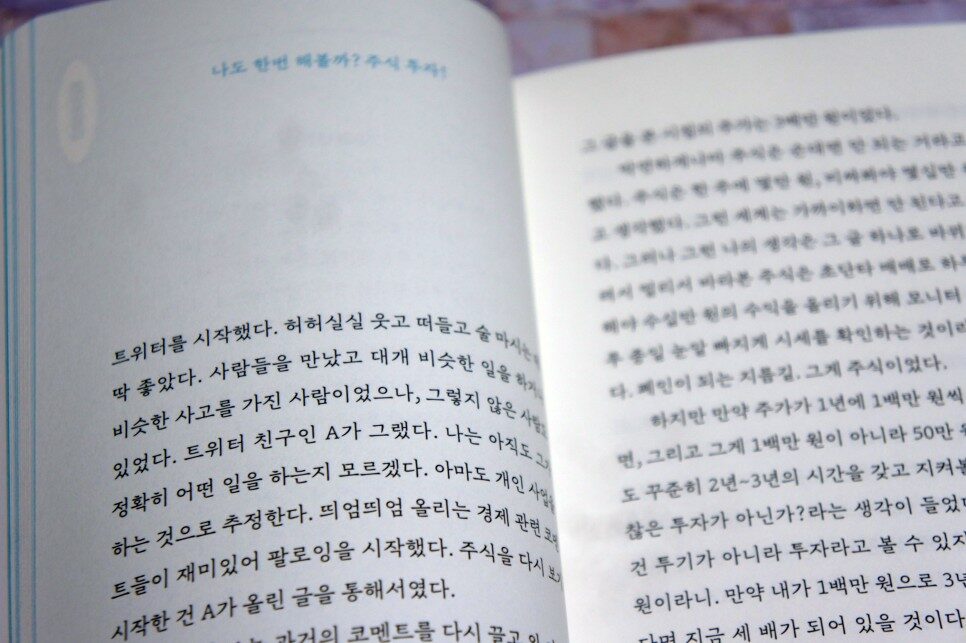 나도 한번 해볼까? 주식 투자!
트위터를 시작했다. 허허실실 웃고 떠들고 술 마시는
딱 좋았다. 사람들을 만났고 대개 비슷한 일을 하거나
비슷한 사고를 가진 사람이었으나, 그렇지 않은 사람도
있었다. 트위터 친구인 A가 그랬다. 나는 아직도 그가
정확히 어떤 일을 하는지 모르겠다. 아마도 개인 사업을
하는 것으로 추정한다. 띄엄띄엄 올리는 경제 관련 코멘
트들이 재미있어 팔로잉을 시작했다. 주식을 다시 보기
시작한 건 A가 올린 글을 통해서였다.
과거의 코멘트를 다시 끌고 와
그 글을 본 시점의 주가는 3백만 원이었다.
막연하게나마 주식은 손대면 안 되는 거라고
했다. 주식은 한 주에 몇만 원, 비싸봐야 몇십만
고 생각했다. 그런 세계는 가까이하면 안 된다고
다. 그러나 그런 나의 생각은 그 글 하나로 바뀌
해서 멀리서 바라본 주식은 초단타 매매로 하루
해야 수십만 원의 수익을 올리기 위해 모니터
루 종일 눈알 빠지게 시세를 확인하는 것이라
다. 폐인이 되는 지름길. 그게 주식이었다.
하지만 만약 주가가 1년에 1백만 원씩
면, 그리고 그게 1백만 원이 아니라 50만
도 꾸준히 2년~3년의 시간을 갖고 지켜본
찮은 투자가 아닌가?라는 생각이 들었다
건 투기가 아니라 투자라고 볼 수 있지
원이라니. 만약 내가 1백만 원으로 3년
다면 지금 세 배가 되어 있을 것이다